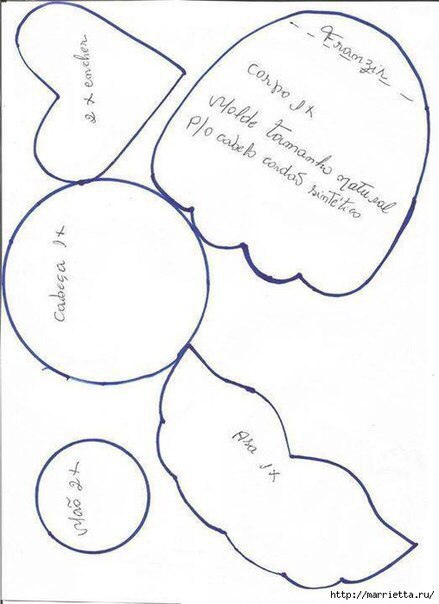 2x encher
Franzir
Corpo 1x
Molde tamanho natural
P/o cabelo cordão sintético
Cabeça 1x
Asa 1x
Mão 2x
http://marrietta.ru/